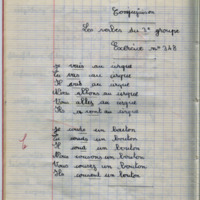 Conjugaison
Les verbes du 3e groupe
Exercice n° 348
Je vais au cirque
Tu vas au cirque
Il va au cirque
Nous allons au cirque
Vous allez au cirque
Ils vont au cirque
Je couds un bouton
Tu couds un bouton
Il coud un bouton
Nous cousons un bouton
Vous cousez un bouton
Ils cousent un bouton